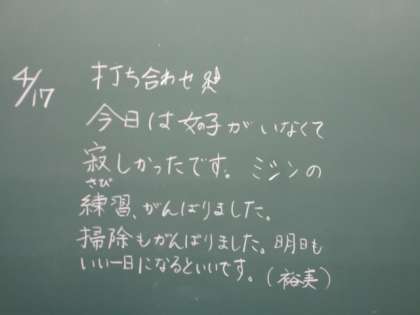 4/17
打ち合わせ
今日は女子がいなくて
寂しかったです。ミジンの
さび
練習、がんばりました。
掃除もがんばりました。明日も
いい一日になるといいです。(裕美)